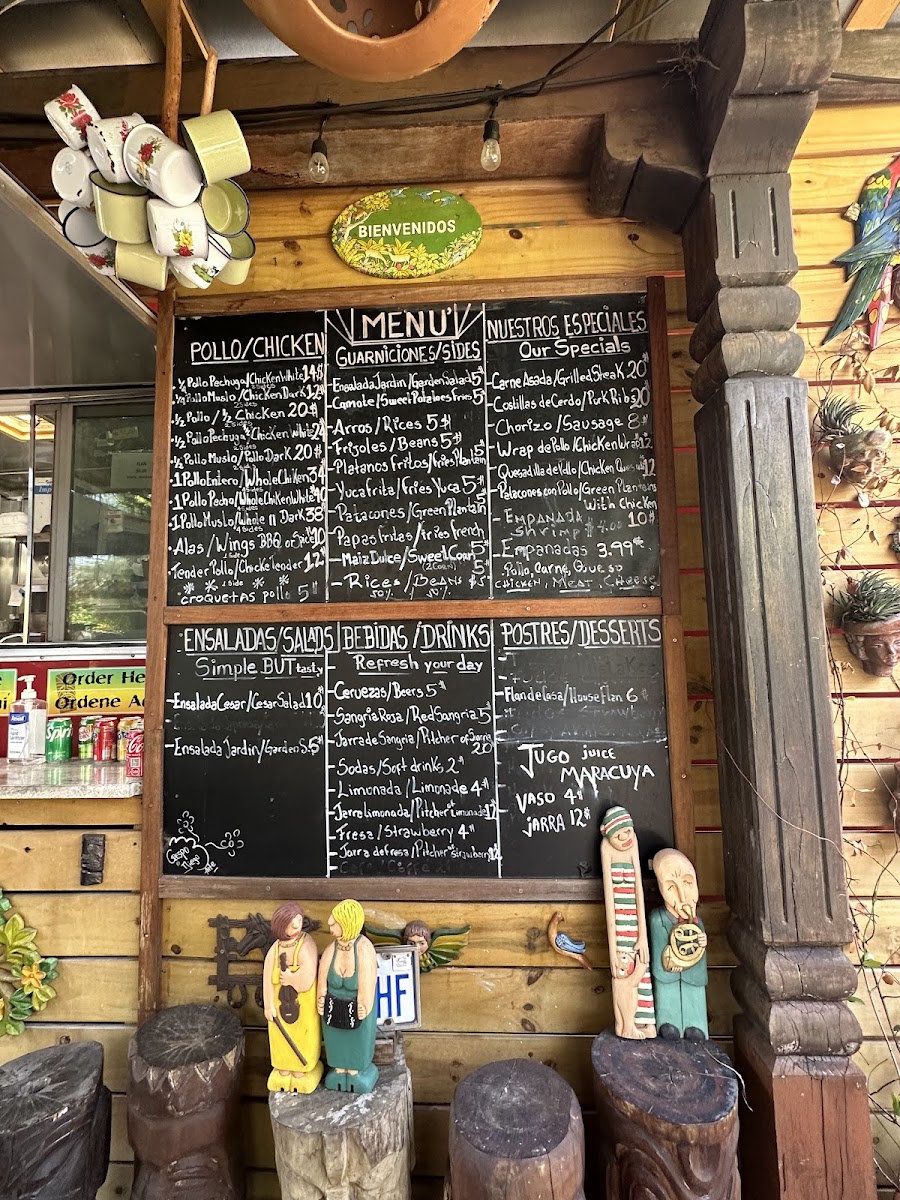 BIENVENIDOS
MENU'
POLLO/CHICKEN
½ Pollo Pechuga/Chicken White 14$
2 sides
½ Pollo Muslo/Chicken Dark 12$
2 sides
½ Pollo / ½ Chicken 20$
2 sides
½ Pollo Pechuga/Chicken White 24
½ Pollo Muslo/Pollo Dark 20$
1 Pollo Entero/Whole Chicken 34
4 sides
1 Pollo Pecho/Whole Chicken White 40
4 sides
1 Pollo Muslo/Whole n Dark 38
4 sides
Alas/Wings BBQ or Spice 10
1 side
Tender Pollo/Chocke Tender 12$
1 side
croquetas pollo 5$
GUARNICIONES/SIDES
Ensalada Jardin/Garden Salad 5$
Camote/Sweet Potatoes Fries 5$
Arros/Rices 5$
Frijoles/Beans 5$
Platanos Fritos/fries Plantain 5$
Yuca frita/fries Yuca 5$
Patacones/Green Plantain 5
Papas fritas/fries french 5
Maiz Dulce/Sweet Corn 5$
(2 Corn)
Rices/Beans $5
50% 50%
NUESTROS ESPECIALES
Our Specials
Carne Asada/Grilled Steak 20$
Costillas de Cerdo/Pork Ribs 20$
Chorizo/Sausage 8$
Wrap de Pollo/Chicken Wrap 12
Quesadilla de Pollo/Chicken 12
Patacones con Pollo/Green Plantains
With Chicken
10$
EMPANADA
Shrimp $4.00
Empanadas 3.99
Pollo, Carne, Queso
CHICKEN, MEAT, CHEESE
ENSALADAS/SALADS
Simple BUT tasty
Ensalada Cesar/Cesar Salad 10$
Ensalada Jardin/Garden S. 5$
BEBIDAS/DRINKS
Refresh your day
Cervezas/Beers 5$
Sangria Rosa/Red Sangria 5$
Jarra de Sangria/Pitcher of Sangria
20
Sodas/Soft drinks 2$
Limonada/Limonade 4$
Jarra Limonada/Pitcher of Limonade 12
Fresa/Strawberry 4$
Jarra de fresa/Pitcher of strawberry 12
POSTRES/DESSERTS
Flan de Casa/House Flan 6$
JUGO juice
MARACUYA
VASO 4$
JARRA 12$
Order He
Ordene A
HF